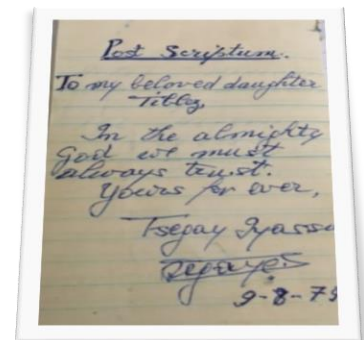 Post Scriptum.
To my beloved daughter
In the almighty
God we must
always trust.
Yours for ever,
Tsegay Iyassu
9-8-75